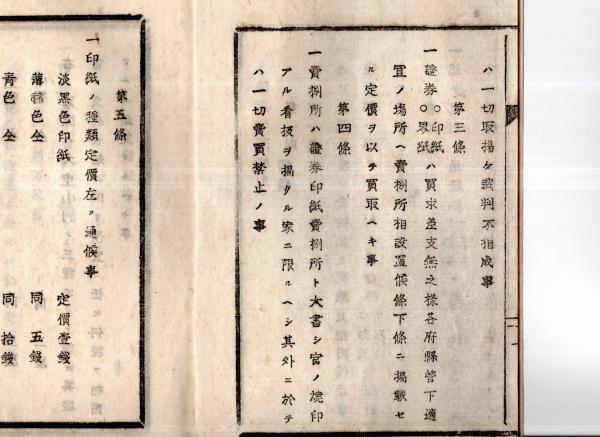 ハ一切取揚ケ裁判不相成事
第三條
一證券○印紙○界紙ハ買求差支無之様各府縣管下適
宜ノ場所ヘ賣捌所相設置候條下條ニ揭載セ
ル定價ヲ以テ買取ヘキ事
第四條
一賣捌所ハ證券印紙賣捌所ト大書シ官ノ燒印
アル看板ヲ揭クル家ニ限ルヘシ其外ニ於テ
ハ一切賣買禁止ノ事
第五條
一印紙ノ種類定價左ノ通候事
淡黑色印紙 定價壹錢
薄緒色仝 同五錢
靑色仝 同拾錢